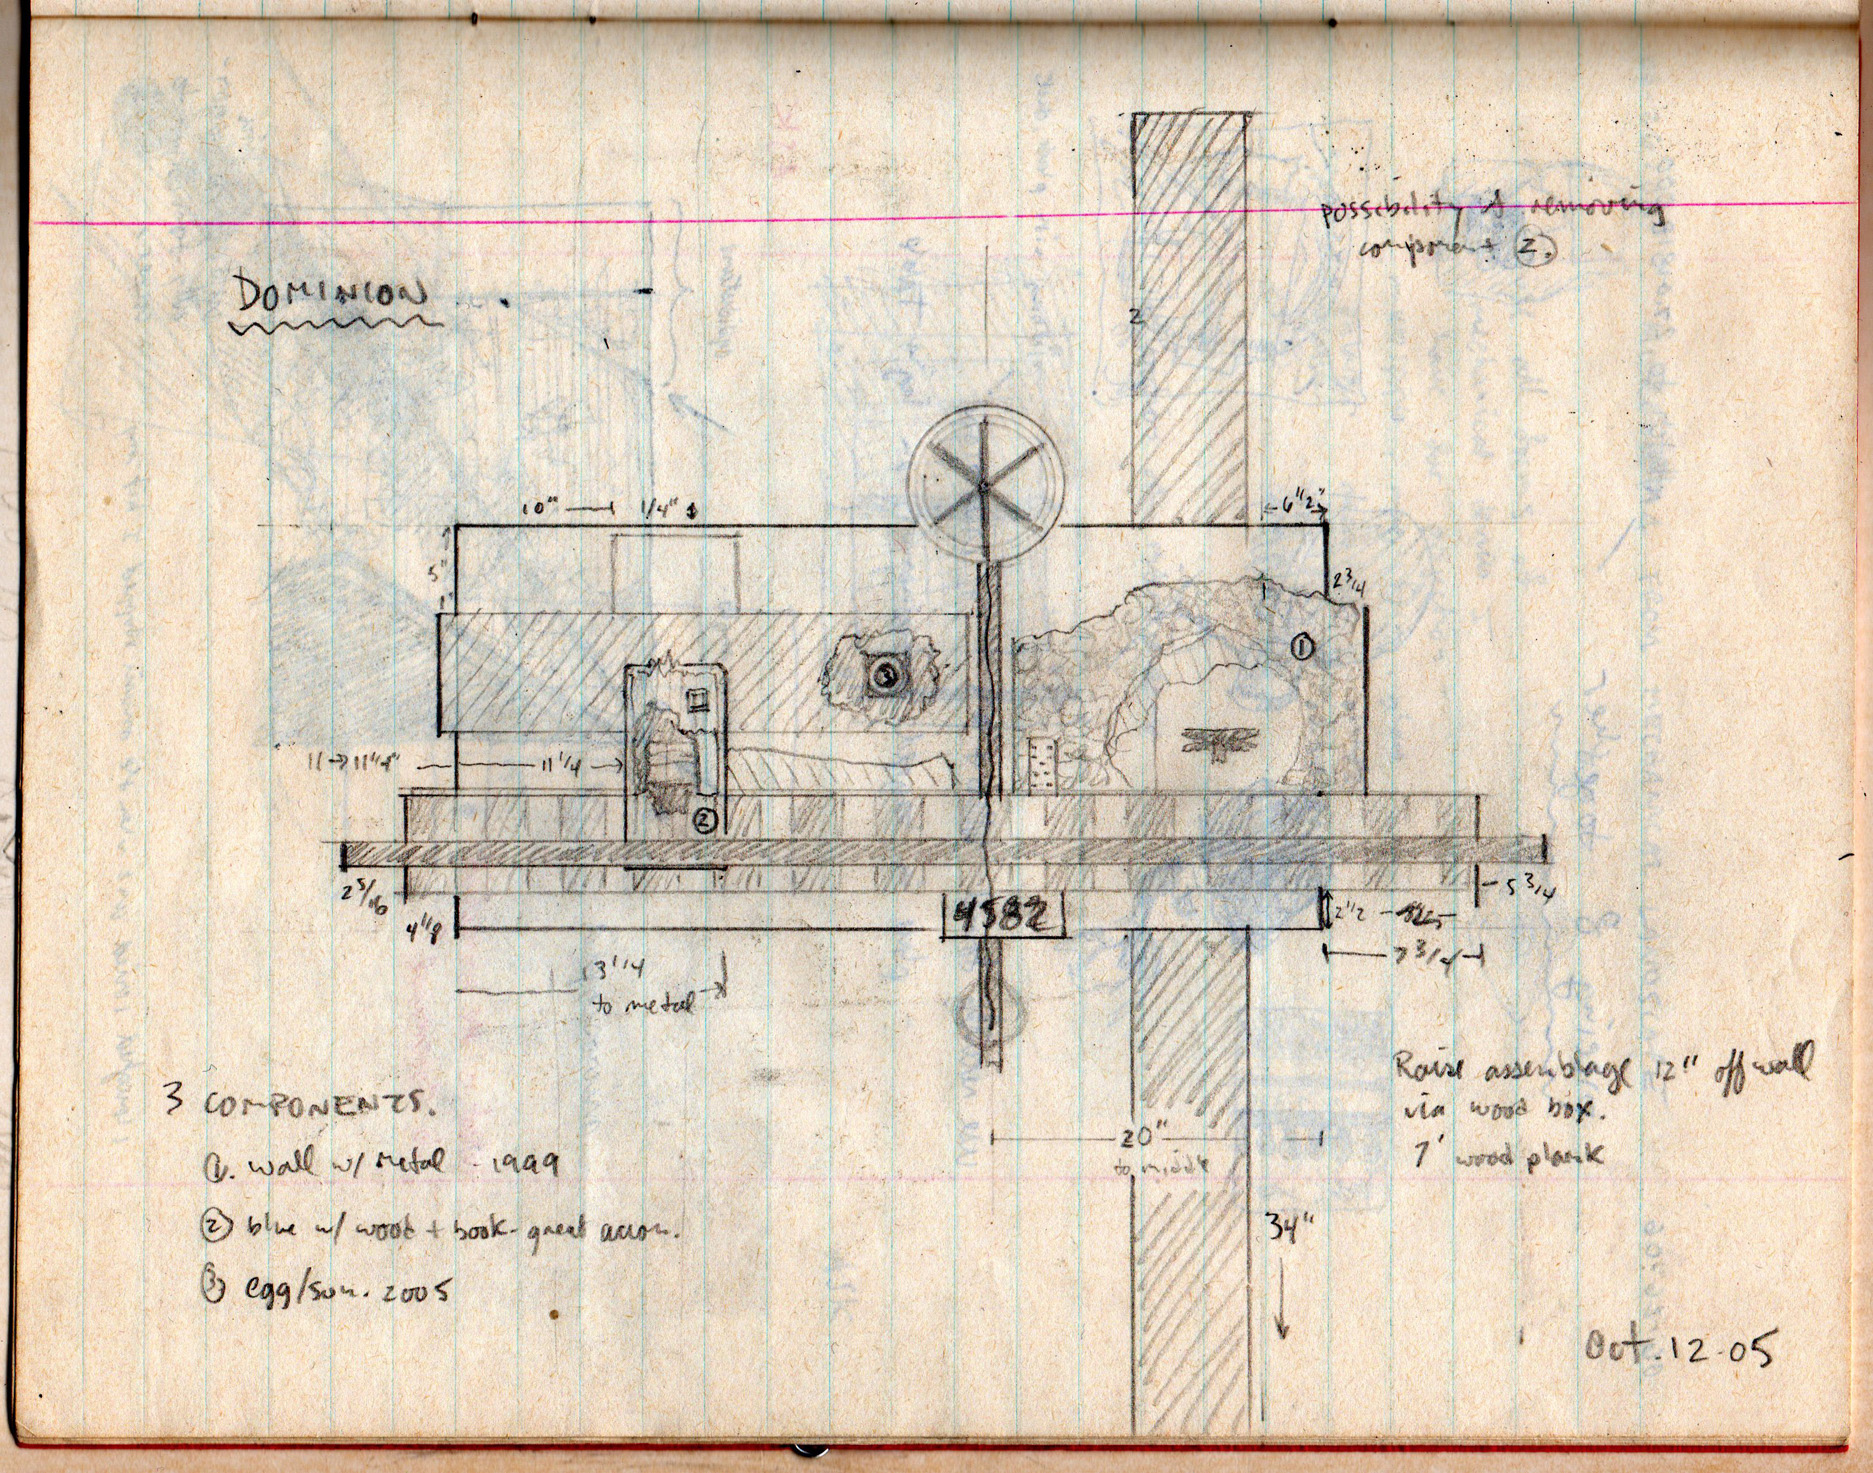 possibility of removing
component ②.
DOMINION
2
10" 1/4"
6 1/2"
5"
2 3/4
①
③
11→11 1/4"
11 1/4
②
2 5/16
5 3/4
4 1/8
4582
2 1/2
7 3/4
13 1/4
to metal
Raise assemblage 12" off wall
via wood box.
7' wood plank
3 COMPONENTS.
①. wall w/ metal - 1999
20"
to middle
② blue w/ wood + book - great
34"
③ egg/sun. 2005
Oct. 12-05